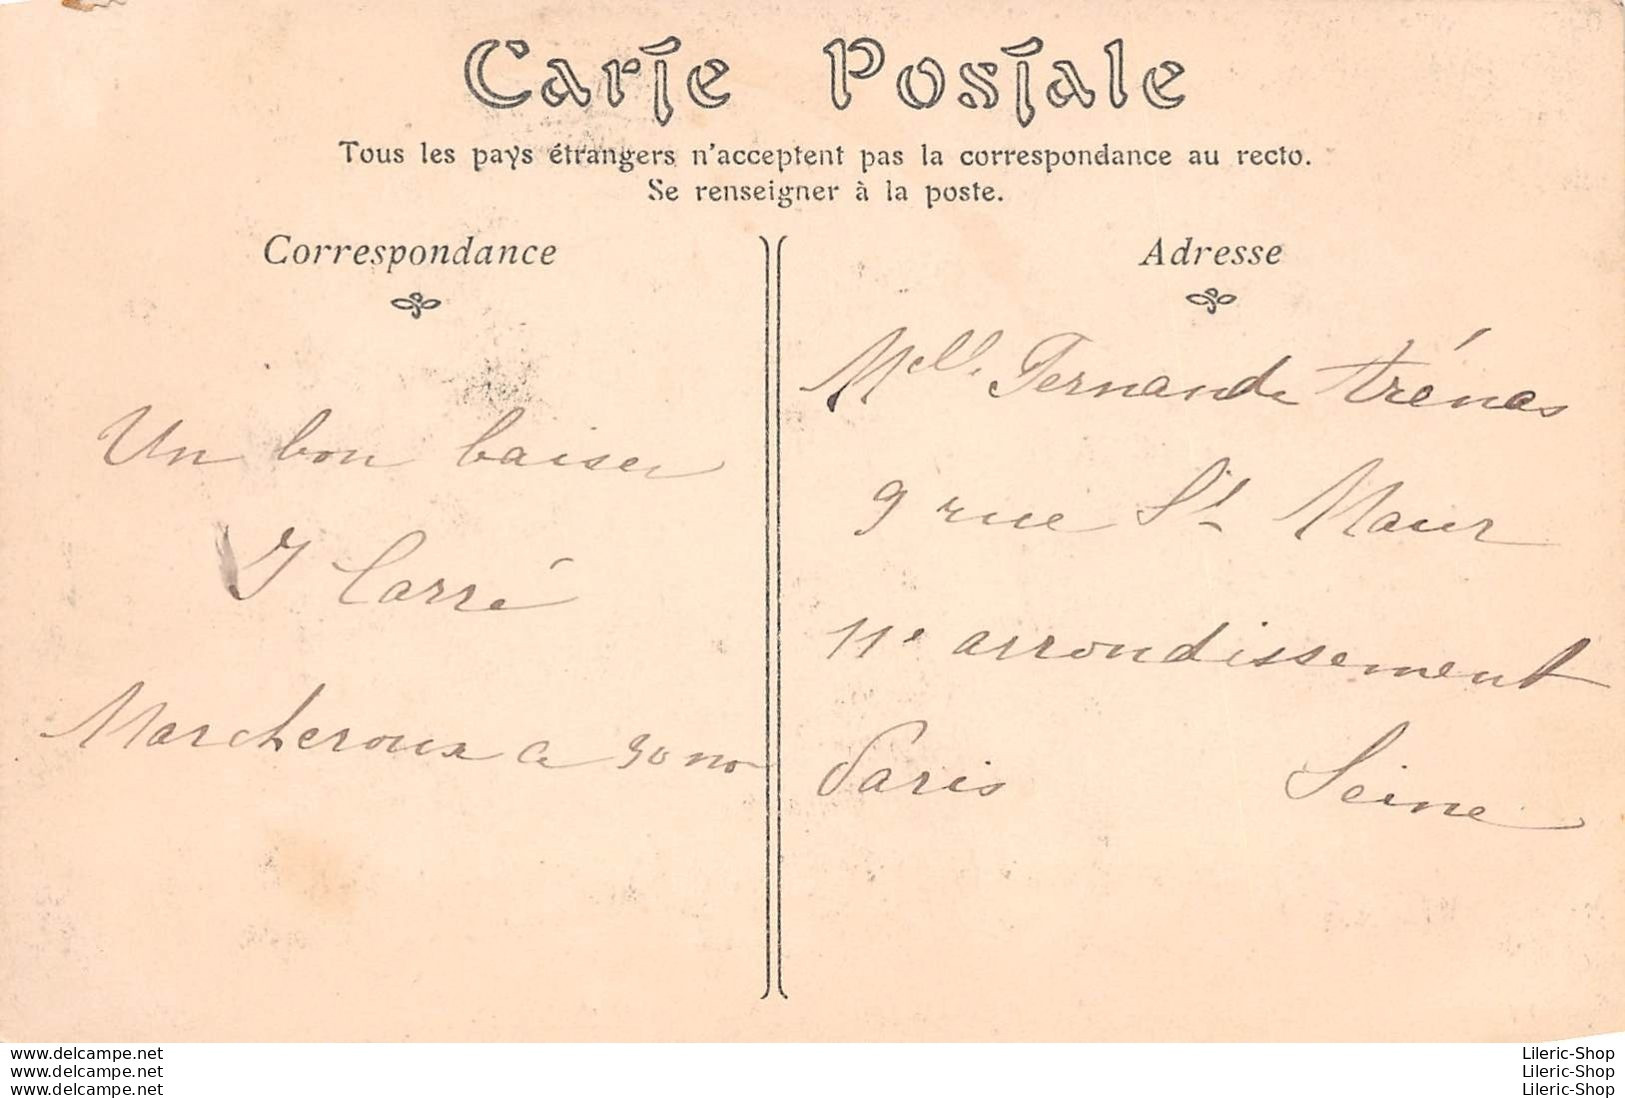 Carte Postale
Tous les pays étrangers n'acceptent pas la correspondance au recto.
Se renseigner à la poste.
Correspondance
Un bon baiser
Carré
Marcheroux
Adresse
Melle Fernande
9 rue St Maur
11e arrondissement
Paris Seine
www.delcampe.net
www.delcampe.net
www.delcampe.net
Lileric-Shop
Lileric-Shop
Lileric-Shop